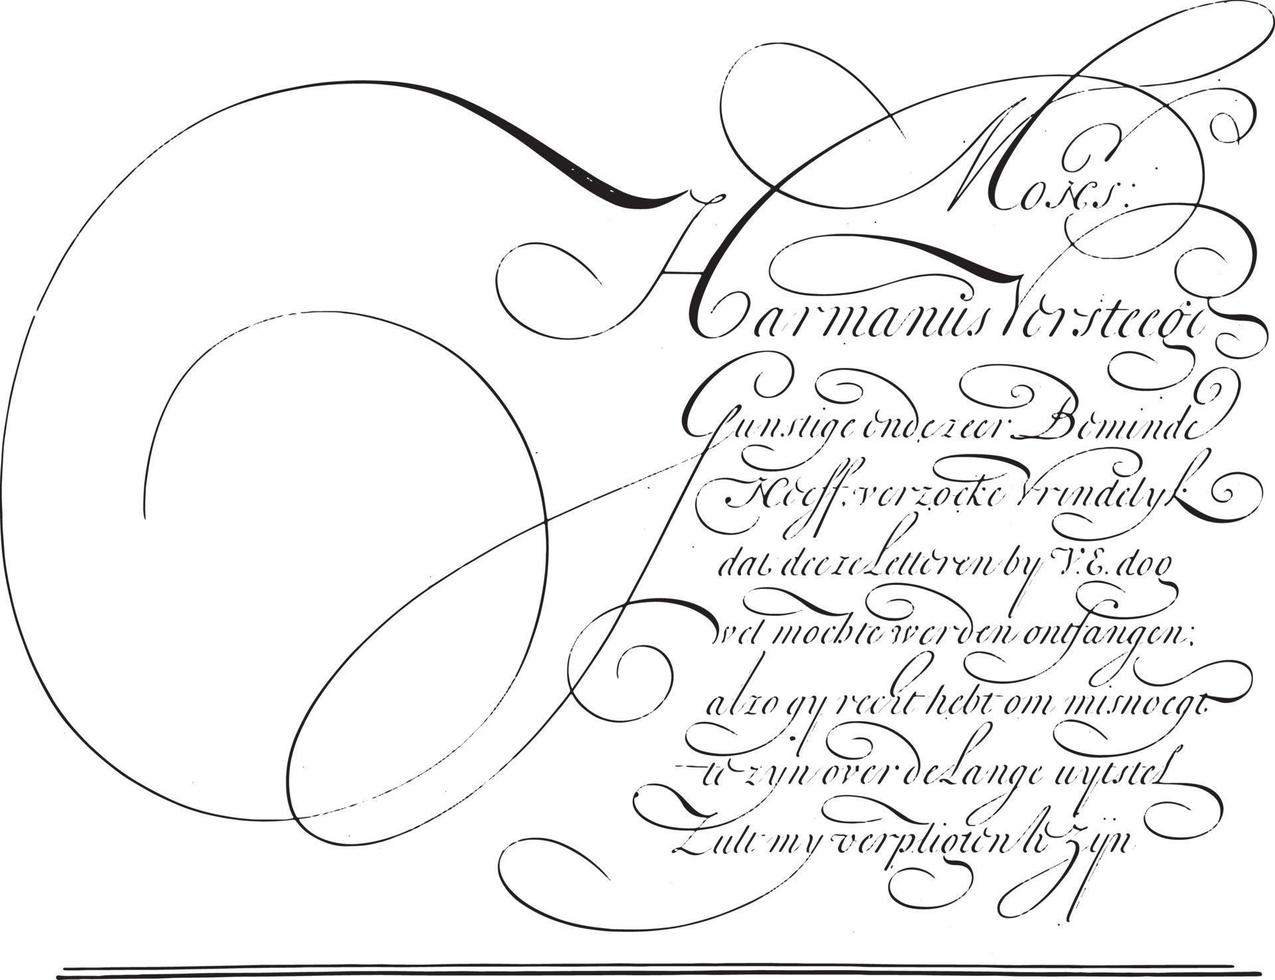 Mons:
Harmanus Versteegt
Gunstige ende zeer Beminde
Neeff: verzoeke Vrindelyk
dat deeze Letteren by V.E. dog
wel mochte werden ontfangen:
alzo gy recht hebt om misnoegt
te zyn over de Lange uytstel
Zult my verpligten te zijn